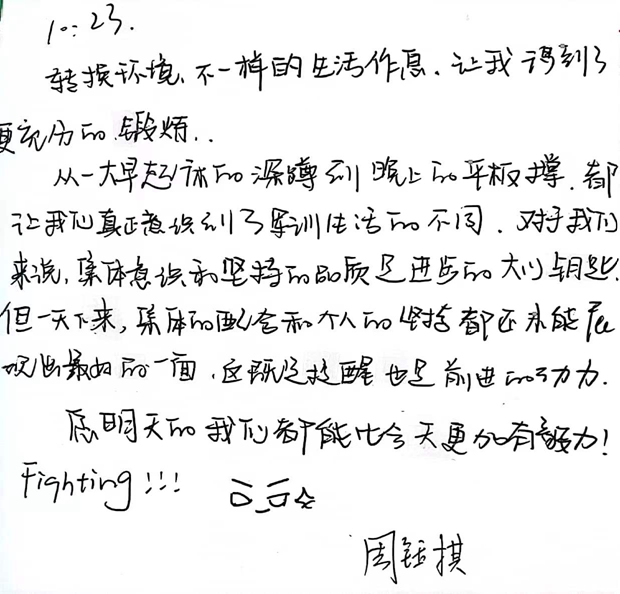 10:23.
转换环境,不一样的生活作息,让我得到了
更充分的锻炼..
从一大早起床的深蹲到晚上的平板撑,都
让我们真正意识到了军训生活的不同。对于我们
来说,集体意识和坚持的品质是进步的大门钥匙.
但一天下来,集体的配合和个人的坚持都还未能展
现出最好的一面,这既是提醒也是前进的动力.
愿明天的我们都能比今天更加有毅力!
Fighting!!!
周钰棋